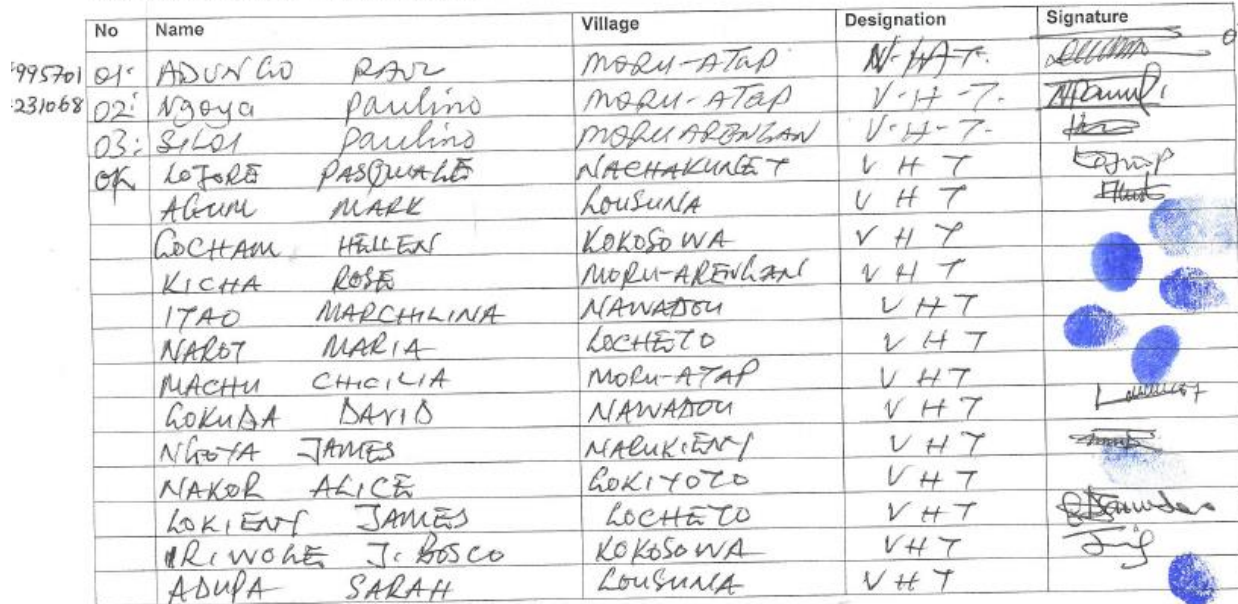 No Name Village Designation Signature
995701 01. ADUNGO PAUL MORU-ATAP V-H-T.
231068 02. Ngoya Paulino MORU-ATAP V-H-T.
03. SiLOI Paulino MORU ARENGAN V-H-T-
OK LOJORE PASQUALE NACHAKUNET V H T
AGUM MARK LOUSUNA V H T
LOCHAM HELLEN KOKOSOWA V H T
KICHA ROSE MORU-ARENGAN V H T
ITAO MARCHILINA NAWADOU V H T
NAROT MARIA LOCHETO V H T
MACHU CHICILIA MORU-ATAP V H T
LOKUDA DAVID NAWADOU V H T
NGOYA JAMES NARUKIENY V H T
NAKOR ALICE LOKIYOTO V H T
LOKIENY JAMES LOCHETO V H T
IRIWOLE J. BOSCO KOKOSOWA V H T
ADUPA SARAH LOUSUNA V H T